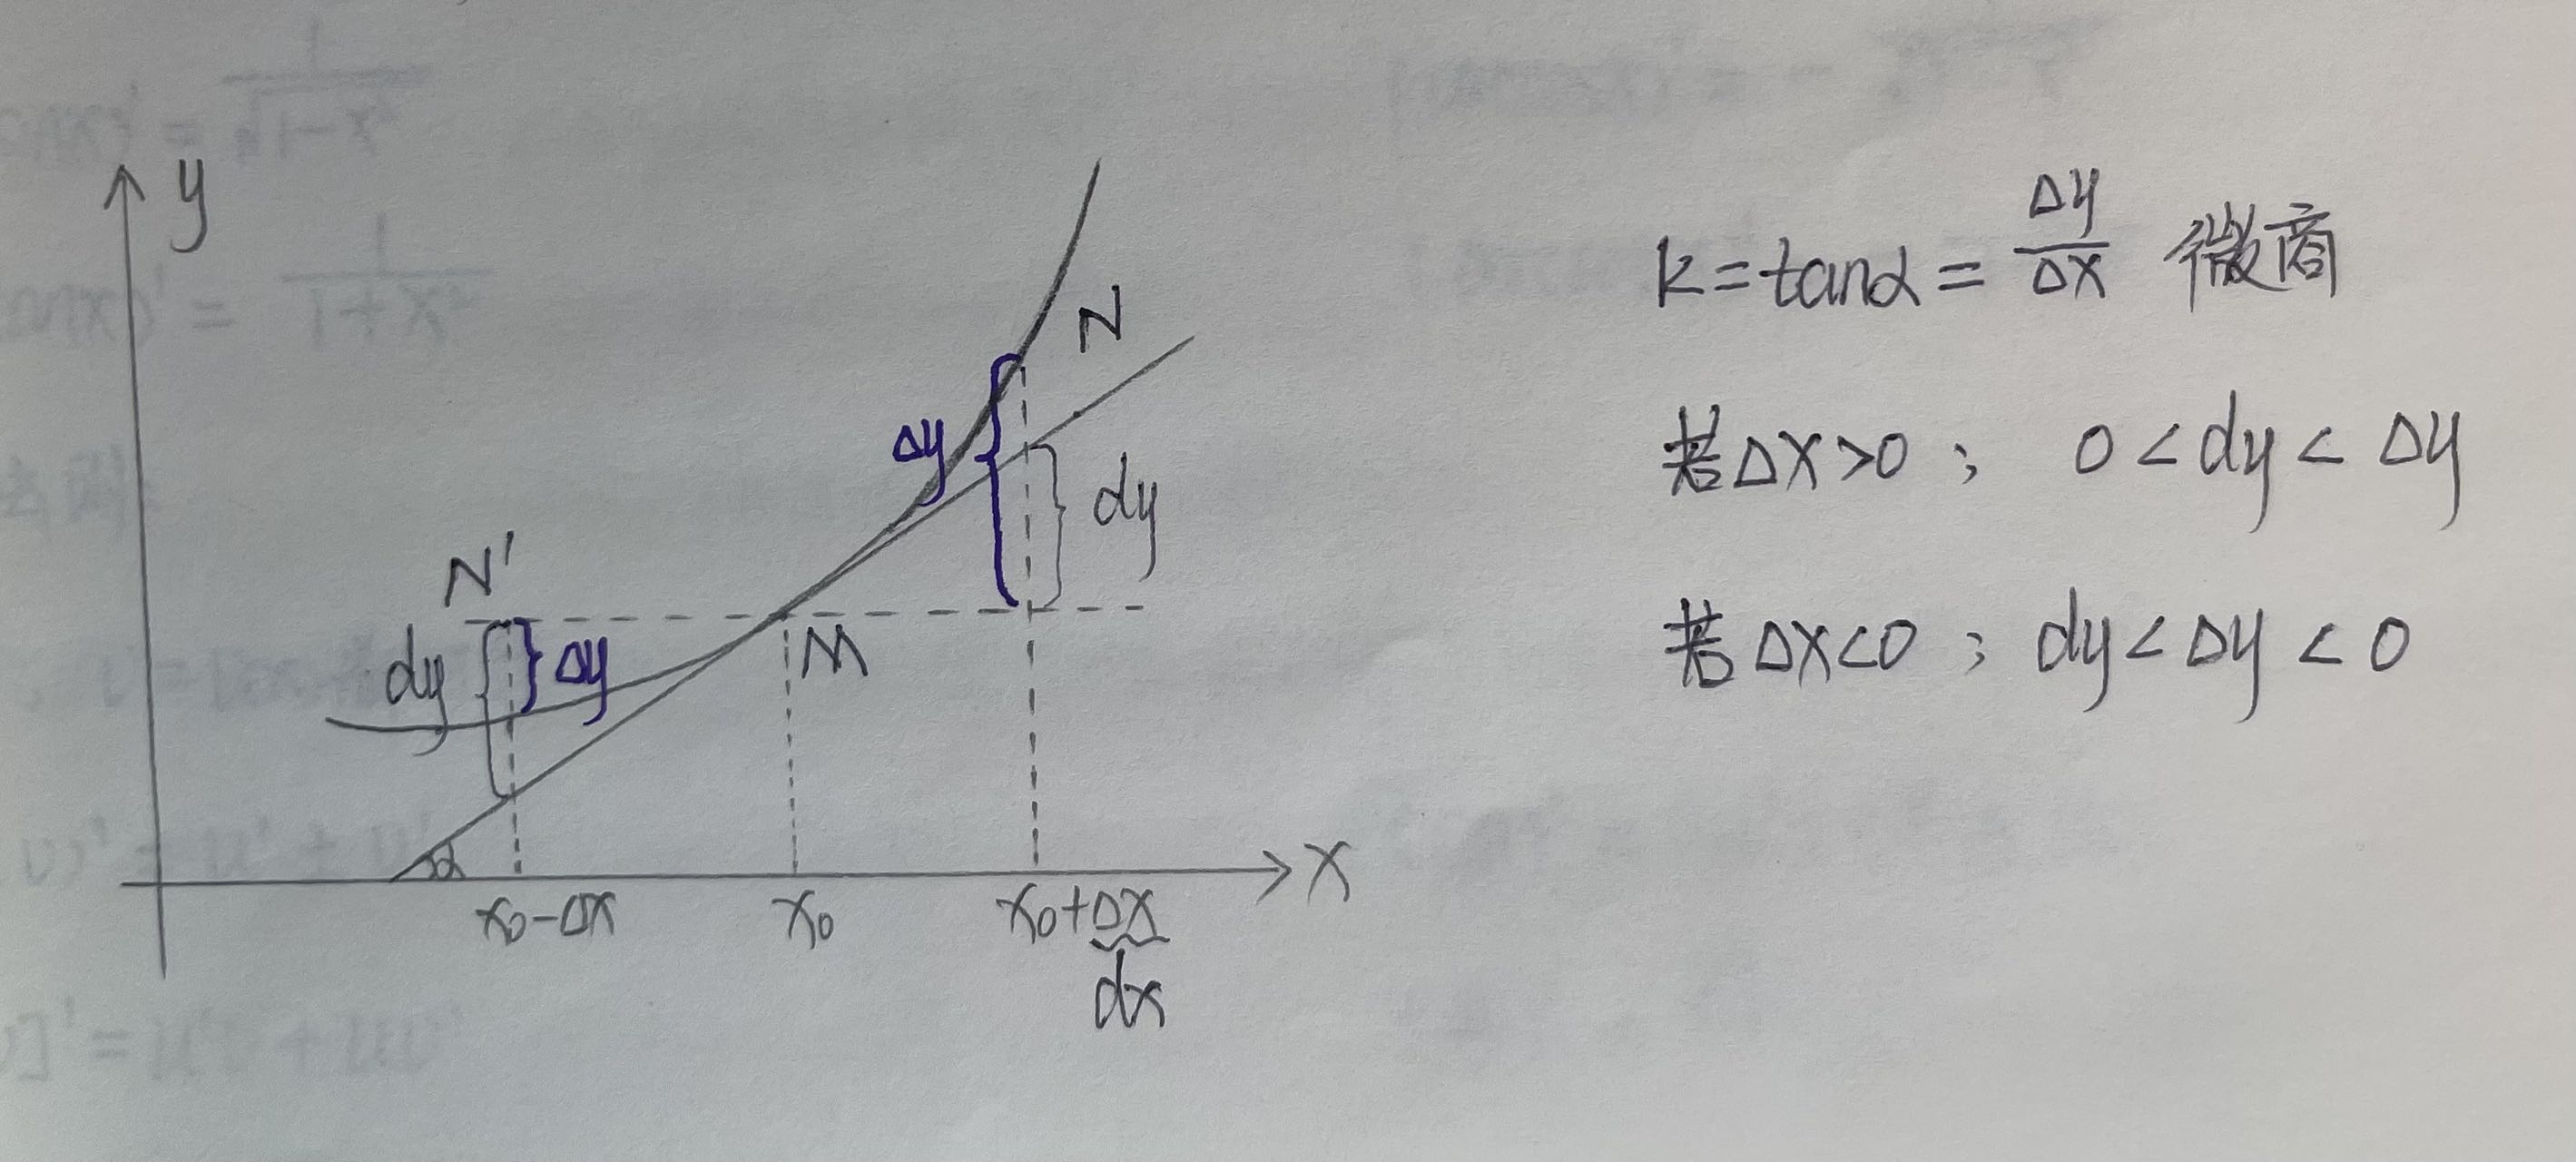 y
N
Δy
dy
N'
dy
Δy
M
α
x₀-Δx
x₀
x₀+Δx
x
dx
k=tanα=Δy/Δx 微商
若Δx>0; 0<dy<Δy
若Δx<0; dy<Δy<0